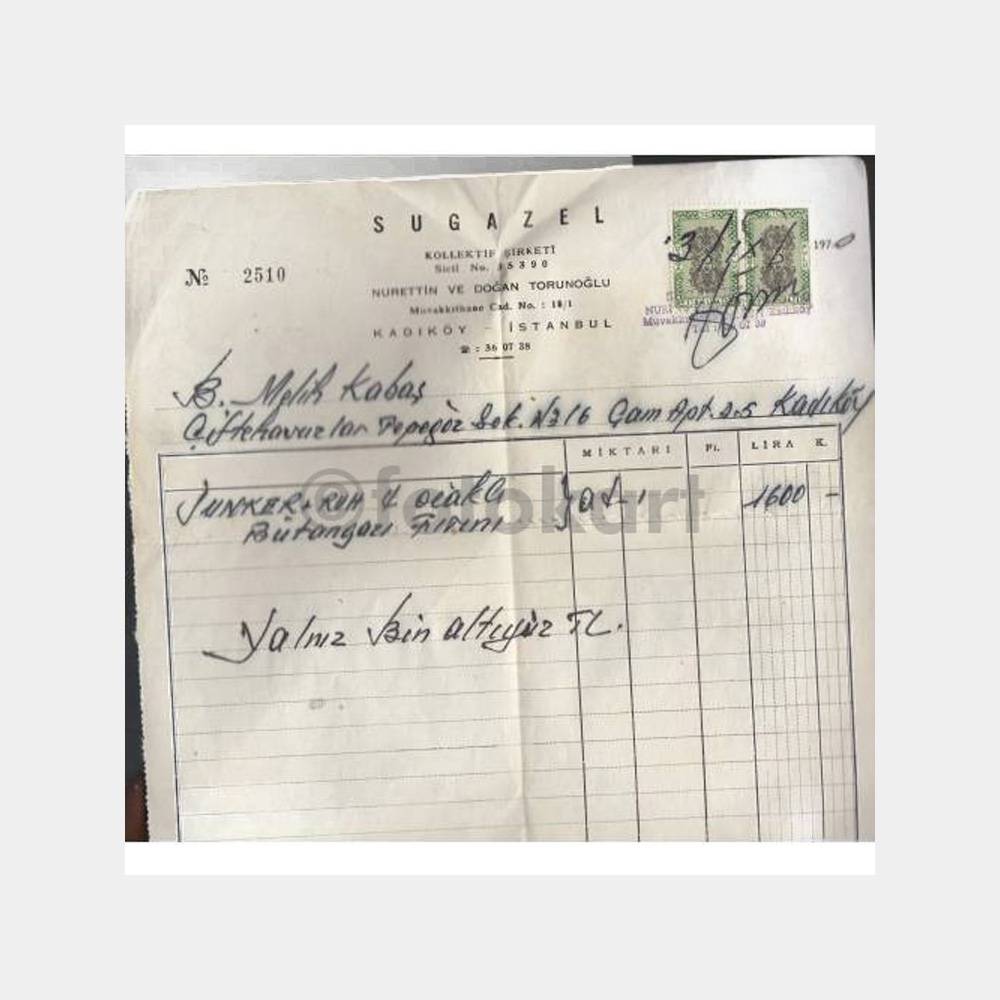 SUGAZEL
KOLLEKTİF ŞİRKETİ
Sicil No. 5390
№ 2510
NURETTİN VE DOĞAN TORUNOĞLU
Muvakkithane Cad. No. : 18/1
KADIKÖY - İSTANBUL
☎ : 36 07 38
3/IX/ 1970
B. Melih Kabaş
Çiftehavuzlar Sok. No 16 Çam Apt. D.5 Kadıköy
MİKTARI Fi. LİRA K.
JUNKER+RUH 4 ocaklı 1600 -
Bütangazı Fırını
Yalnız bin altıyüz TL.
©fotokart